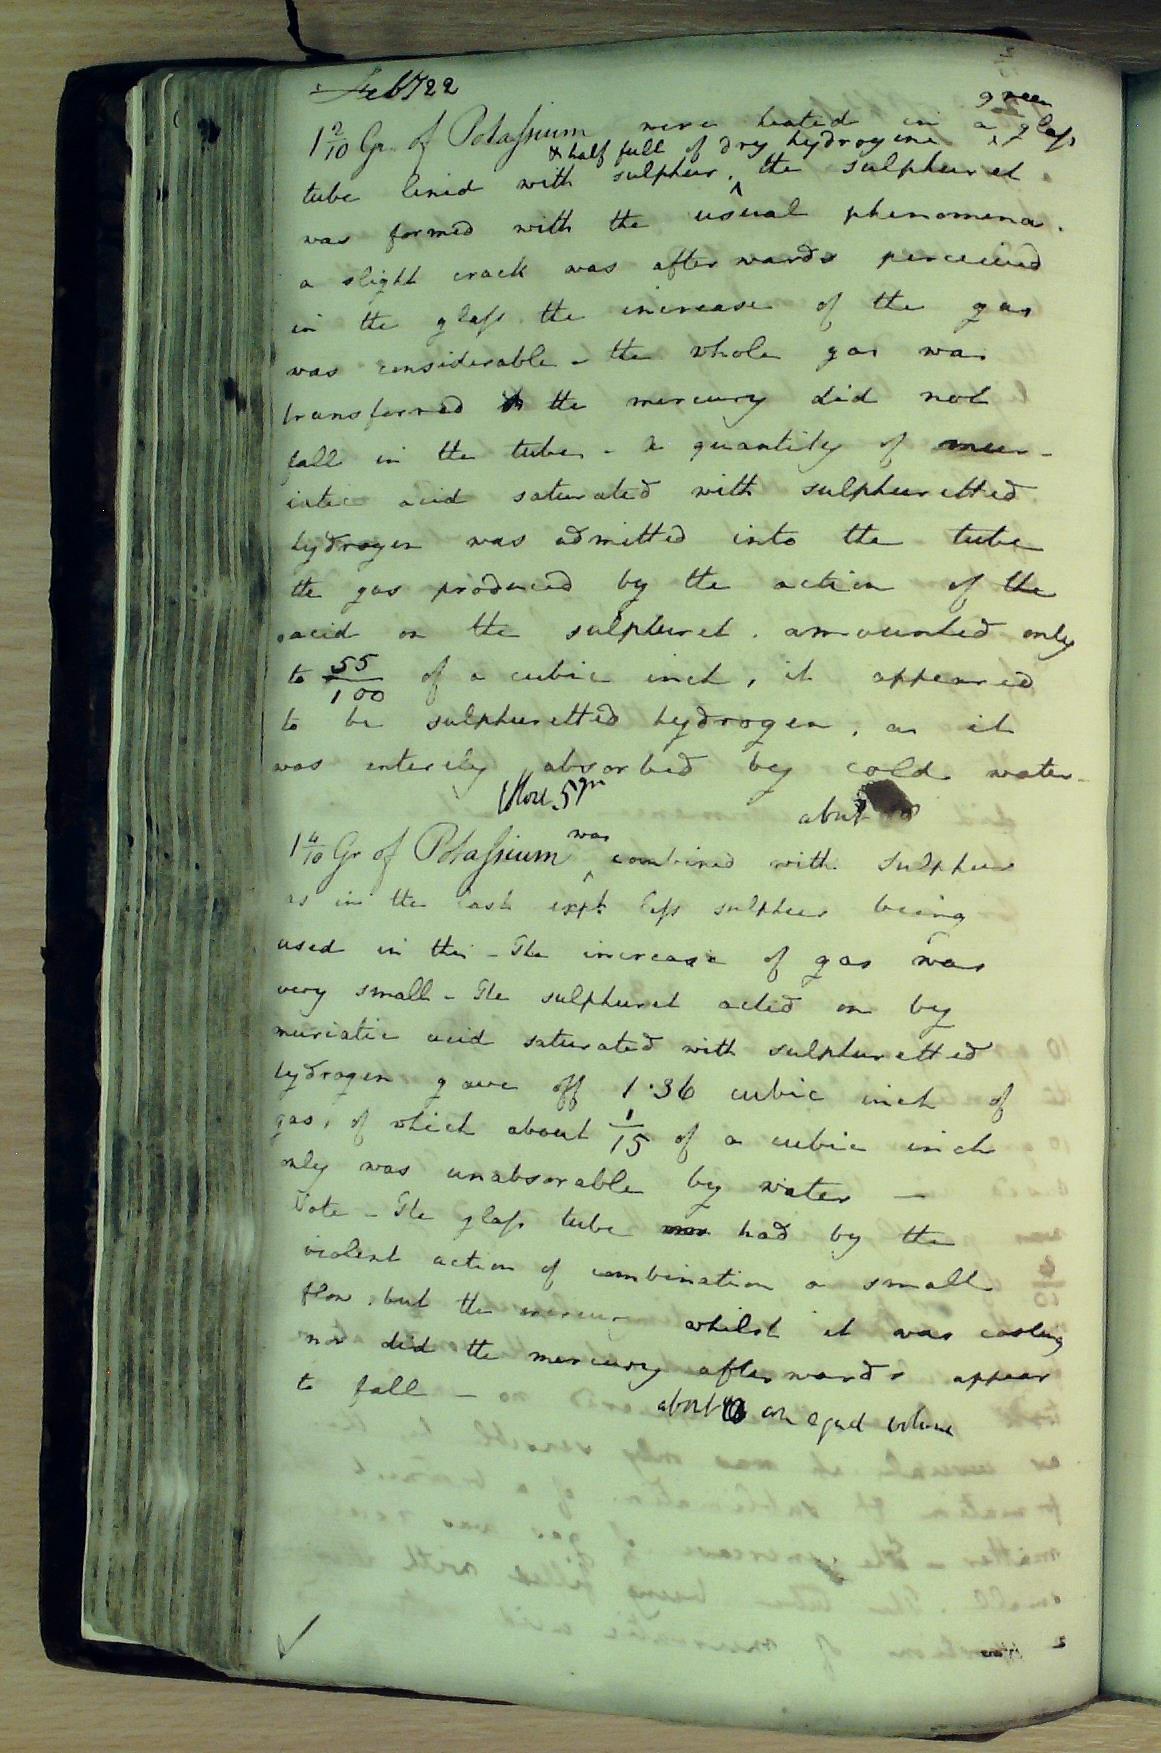 Feby 22
green
1 2/10 Gr. of Potassium were heated in a ^ glass
& half full of dry hydrogene
tube lined with sulphur, ^ the sulphuret
was formed with the usual phenomena.
a slight crack was afterwards perceived
in the glass. the increase of the gas
was considerable - the whole gas was
transferred the mercury did not
fall in the tube - a quantity of mur-
iatic acid saturated with sulphuretted
hydrogen was admitted into the tube
the gas produced by the action of the
acid on the sulphuret. amounted only
to 55/100 of a cubic inch, it appeared
to be sulphuretted hydrogen, as it
was enterily absorbed by cold water -
5 grs
about
was
1 4/10 Gr of Potassium ^ combined with sulphur
as in the last expt. less sulphur being
used in this - The increase of gas was
very small - The sulphuret acted on by
muriatic acid saturated with sulphuretted
hydrogen gave off 1.36 cubic inch of
gas, of which about 1/15 of a cubic inch
only was unabsorable by water —
Note - The glass tube had by the
violent action of combination a small
flaw, but the mercury whilst it was cooling
nor did the mercury afterwards appear
to fall —
about an equal volume